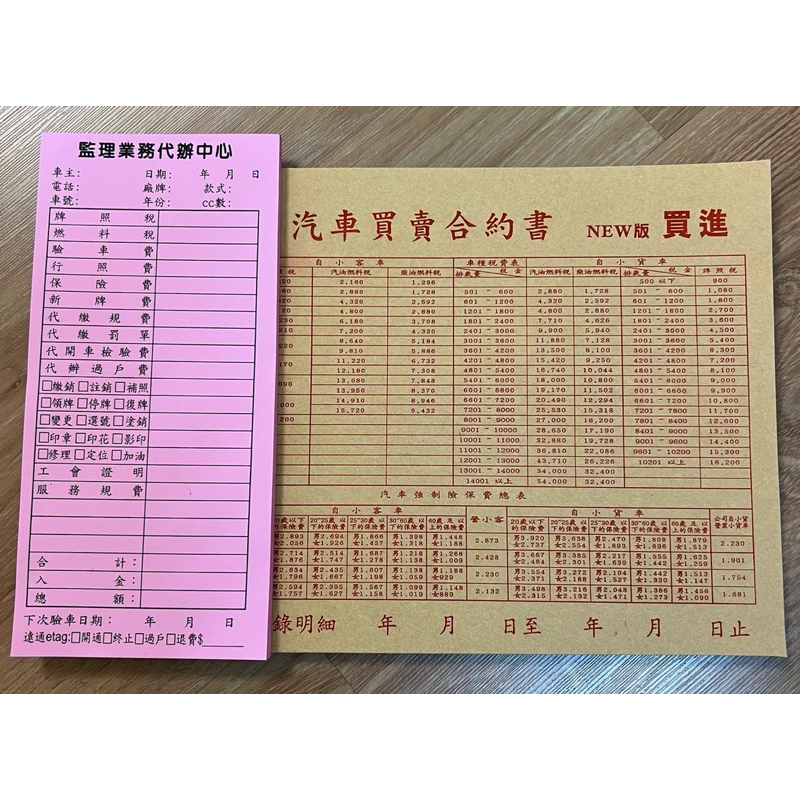 監理業務代辦中心
車主:
日期: 年 月 日
電話:
廠牌: 款式:
車號:
年份: cc數:
牌照稅
燃料稅
驗車費
行照費
保險費
新牌費
代繳規費
代繳罰單
代開車檢驗費
代辦過戶費
□繳銷□註銷□補照
□領牌□停牌□復牌
□變更□選號□塗銷
□印章□印花□影印
□修理□定位□加油
工會證明
服務規費
合計:
入金:
總額:
下次驗車日期: 年 月 日
遠通etag:□開通□終止□過戶□退費$
汽車買賣合約書 NEW版 買進
自小客車 車種稅費表 自小貨車
汽油燃料稅 柴油燃料稅 排氣量 稅金 汽油燃料稅 柴油燃料稅 排氣量 稅金 牌照稅
2,160 1,296 500 以下 900
2,880 1,728 501 ~ 600 2,880 1,728 501 ~ 600 1,080
4,320 2,592 601 ~ 1200 4,320 2,592 601 ~ 1200 1,800
4,800 2,880 1201 ~ 1800 4,800 2,880 1201 ~ 1800 2,700
6,180 3,708 1801 ~ 2400 7,710 4,626 1801 ~ 2400 3,600
7,200 4,320 2401 ~ 3000 9,900 5,940 2401 ~ 3000 4,500
8,640 5,184 3001 ~ 3600 11,880 7,128 3001 ~ 3600 5,400
9,810 5,886 3601 ~ 4200 13,500 8,100 3601 ~ 4200 6,300
11,220 6,732 4201 ~ 4800 15,420 9,250 4201 ~ 4800 7,200
12,180 7,308 4801 ~ 5400 16,740 10,044 4801 ~ 5400 8,100
13,080 7,848 5401 ~ 6000 18,000 10,800 5401 ~ 6000 9,000
13,950 8,370 6001 ~ 6600 19,170 11,502 6001 ~ 6600 9,900
14,910 8,946 6601 ~ 7200 20,490 12,294 6601 ~ 7200 10,800
15,720 9,432 7201 ~ 8000 25,530 15,318 7201 ~ 7800 11,700
8001 ~ 9000 27,000 16,200 7801 ~ 8400 12,600
9001 ~ 10000 28,650 17,190 8401 ~ 9000 13,500
10001 ~ 11000 32,880 19,728 9001 ~ 9600 14,400
11001 ~ 12000 36,810 22,086 9601 ~ 10200 15,390
12001 ~ 13000 43,710 26,226 10201 以上 16,200
13001 ~ 14000 54,000 32,400
14001 以上 54,000 32,400
汽車強制險保費總表
自小客車 營小客 自小貨車 公司自小貨 營業小貨車
20歲以下的保險費 20~25歲以下的保險費 25~30歲以下的保險費 30~60歲以下的保險費 60歲及以上的保險費 20歲以下的保險費 20~25歲以下的保險費 25~30歲以下的保險費 30~60歲以下的保險費 60歲及以上的保險費
男2.893 男2.694 男1.866 男1.398 男1.448 2.873 男3.920 男3.638 男2.470 男1.808 男1.879 2.230
女2.056 女1.926 女1.457 女1.318 女1.188 女2.737 女2.554 女1.893 女1.696 女1.513
男2.714 男2.514 男1.687 男1.218 男1.268 2.428 男3.667 男3.385 男2.217 男1.555 男1.625 1.901
女1.876 女1.747 女1.278 女1.138 女1.009 女2.484 女2.301 女1.639 女1.442 女1.259
男2.634 男2.435 男1.607 男1.138 男1.188 2.230 男3.554 男3.272 男2.104 男1.442 男1.513 1.754
女1.796 女1.667 女1.198 女1.059 女929 女2.371 女2.188 女1.527 女1.330 女1.147
男2.594 男2.395 男1.567 男1.099 男1.148 2.132 男3.498 男3.216 男2.048 男1.386 男1.456 1.681
女1.757 女1.627 女1.158 女1.019 女889 女2.315 女2.132 女1.471 女1.273 女1.090
錄明細 年 月 日至 年 月 日止